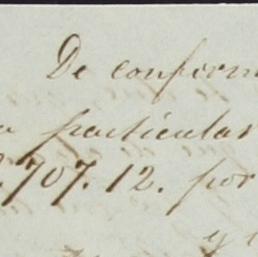 De conform
particular
707.12. por
y